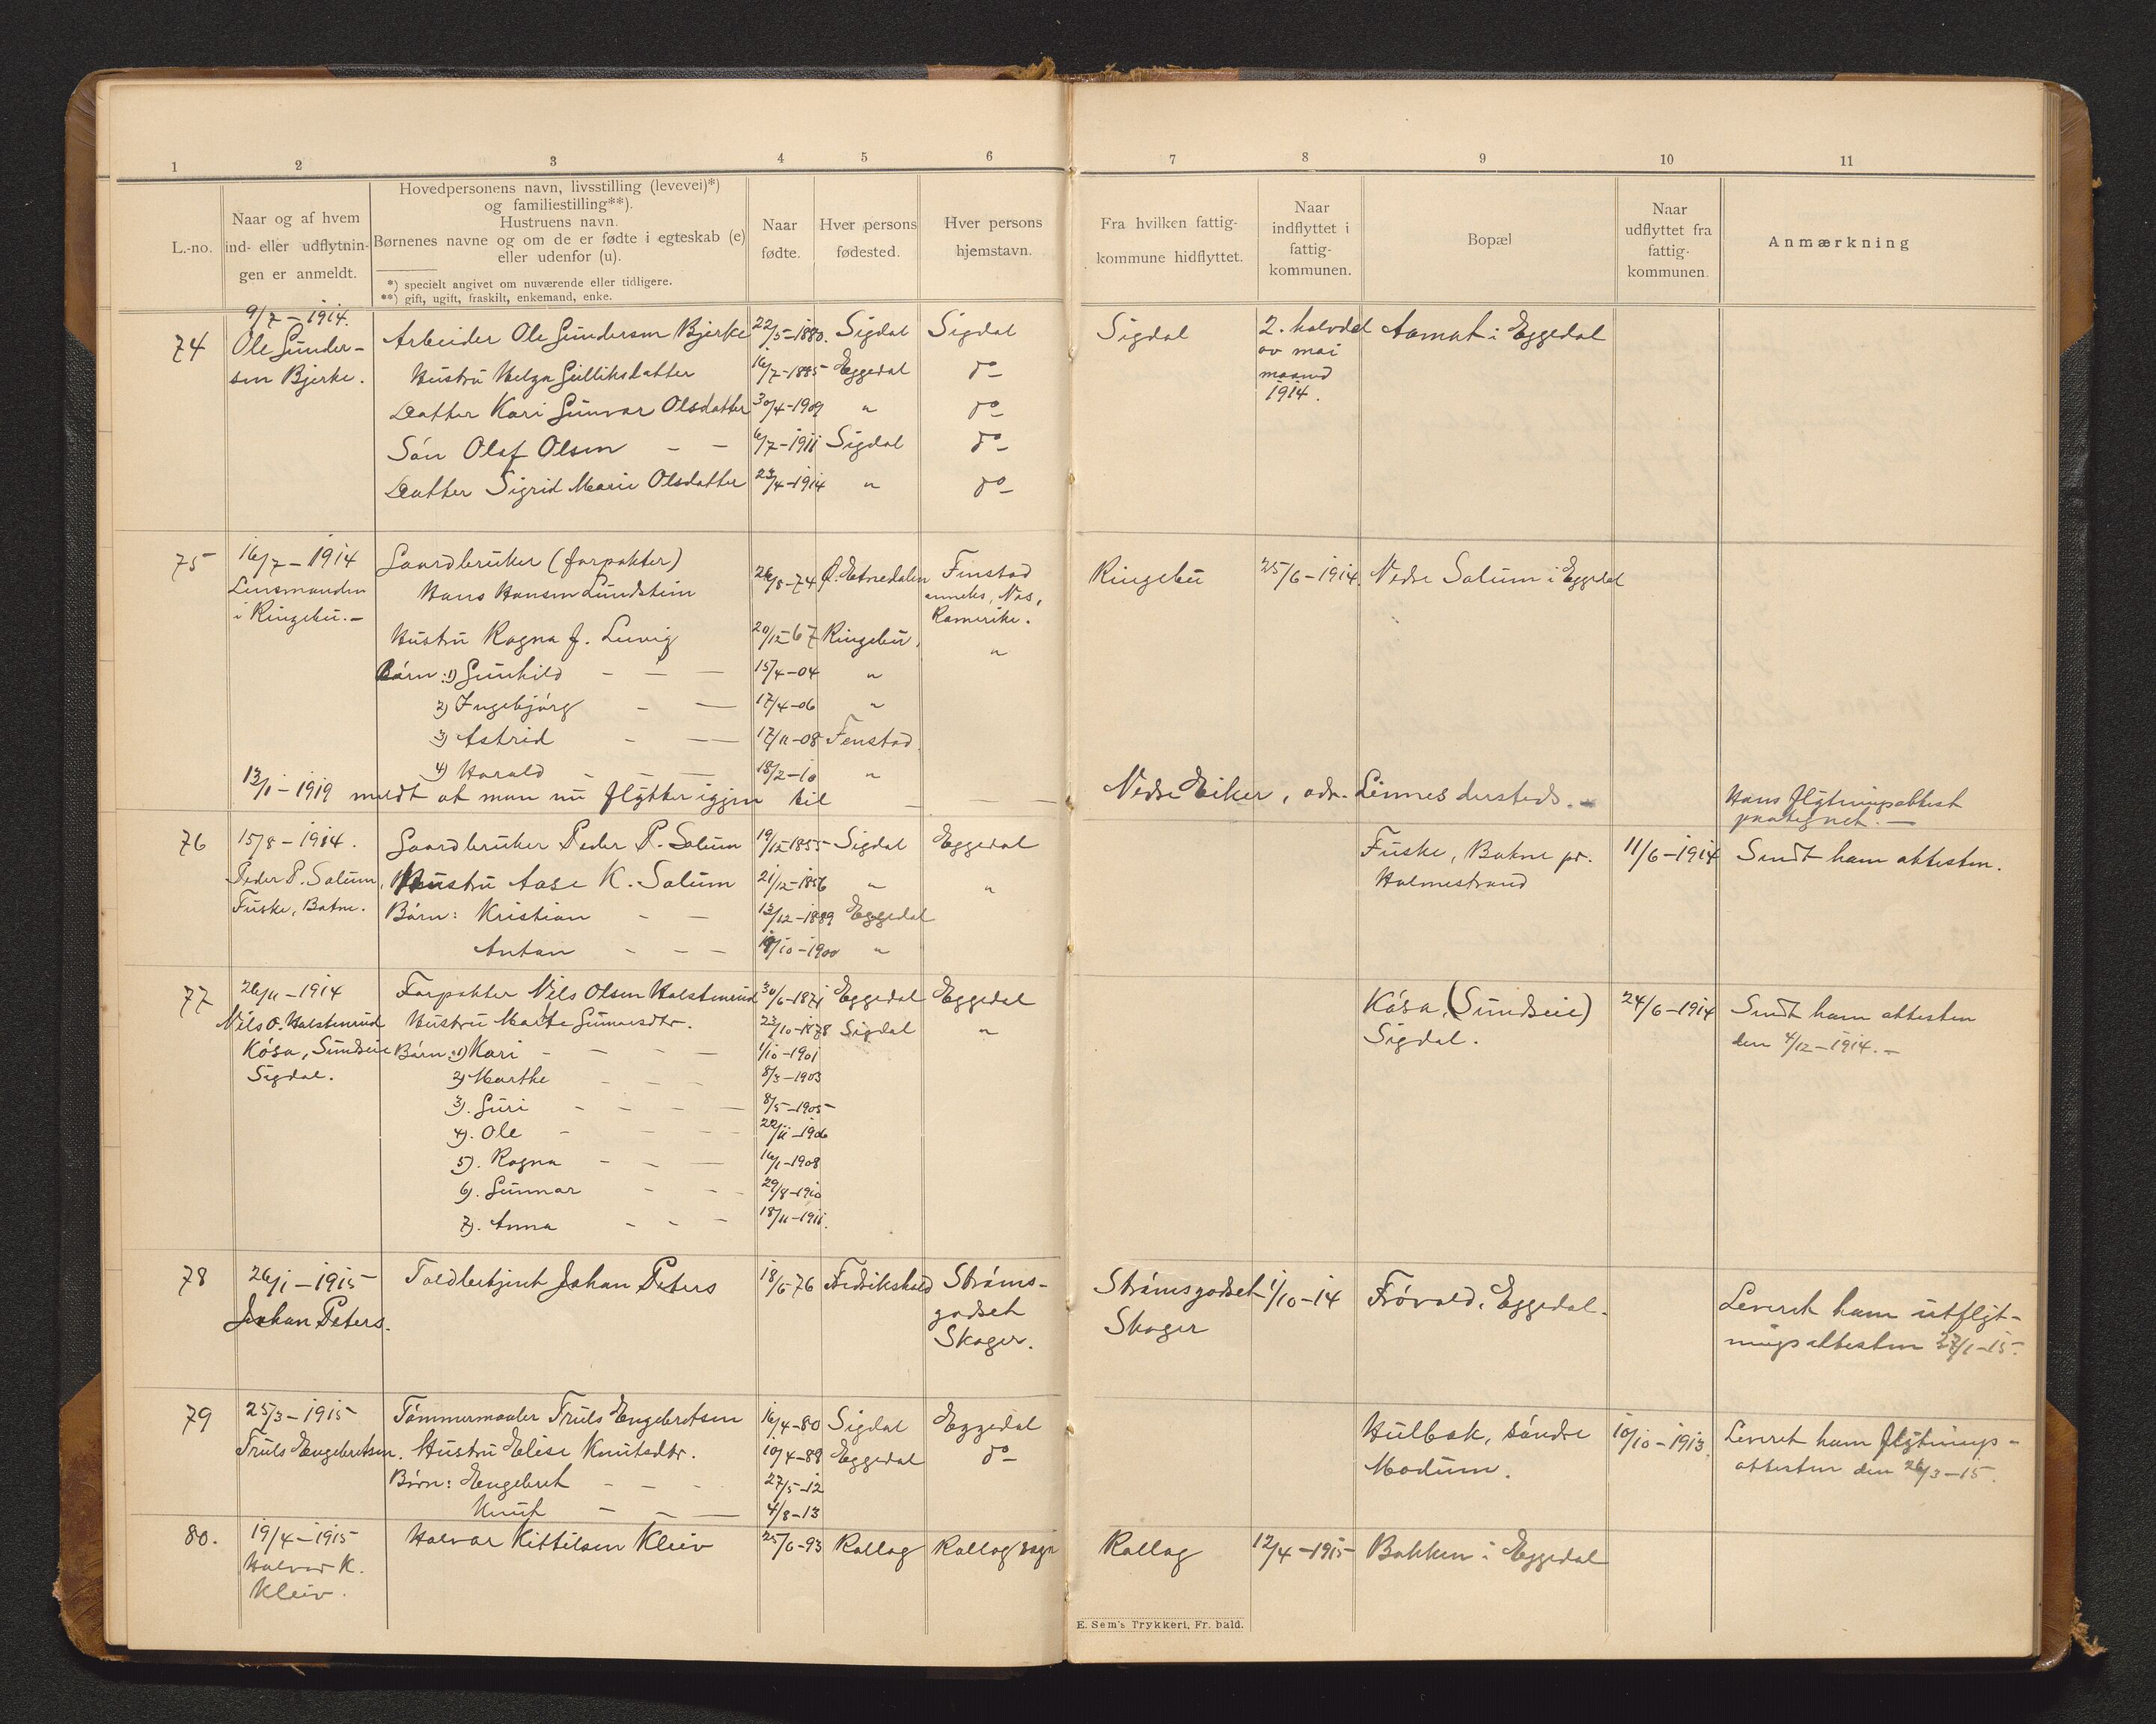 1 2 3 4 5 6 7 8 9 10 11
L.-no.
Naar og af hvem
ind- eller udflytnin-
gen er anmeldt.
Hovedpersonens navn, livsstilling (levevei)*)
og familiestilling**).
Hustruens navn.
Børnenes navne og om de er fødte i egteskab (e)
eller udenfor (u).
*) specielt angivet om nuværende eller tidligere.
**) gift, ugift, fraskilt, enkemand, enke.
Naar
fødte.
Hver persons
fødested.
Hver persons
hjemstavn.
Fra hvilken fattig-
kommune hidflyttet.
Naar
indflyttet i
fattig-
kommunen.
Bopæl
Naar
udflyttet fra
fattig-
kommunen.
Anmærkning
74
9/7 – 1914.
Ole Gunder-
sen Bjerke.
Arbeider Ole Gundersen Bjerke 22/5-1880. Sigdal Sigdal
Hustru Helga Gulliksdatter 16/7-1885 Eggedal do
Datter Kari Gunvor Olsdatter 30/4-1909 " do
Søn Olaf Olsen – – 6/7-1911 Sigdal do
Datter Sigrid Marie Olsdatter 23/4-1914 " do
Sigdal
2. halvdel
av mai
maaned
1914.
Aamot i Eggedal
75
16/7 – 1914
Lensmanden
i Ringebu.–
Gaardbruker (forpakter)
Hans Hansen Lundstein 26/8-74 Ø. Etnedalen Finstad
anneks, Nes,
Romerike.
Hustru Ragna f. Lunvig 20/12-67 Ringebu. "
Børn: 1) Gunhild – – – 15/4-04 "
2) Ingebjørg – – 17/4-06 "
3) Astrid – – 17/11-08 Fenstad
4) Harald – – – 18/2-10 "
Ringebu 25/6-1914. Nedre Solum i Eggedal
13/1-1919 meldt at man nu flytter igjen til – – – Nedre Eiker, adr. Linnes dersteds.–
Hans flytningsattest
paategnet.–
76
15/8 – 1914.
Peder P. Solum,
Fuske, Botne.
Gaardbruker Peder P. Solum 19/12-1855 Sigdal Eggedal
Hustru Aase K. Solum 21/12-1856 " "
Børn: Kristian – – 13/12-1889 Eggedal
Anton – – – 19/10-1900 "
Fuske, Botne pr.
Holmestrand
11/6-1914 Sendt ham attesten.
77
26/11 – 1914
Nils O. Holstenrud
Kósa, Sundseie
Sigdal.
Forpakter Nils Olsen Holstenrud 30/6-1871 Eggedal Eggedal
Hustru Marte Gunnersdtr. 23/10-1878 Sigdal "
Børn: 1) Kari – – – – 1/10-1901
2) Marthe – – – 8/3-1903
3). Guri – – – – 8/5-1905
4). Ole – – – 22/11-1906
5). Ragna – – – 16/1-1908
6). Gunnar – – – 29/8-1910
7). Anna – – – 18/11-1911.
Kósa, (Sundseie)
Sigdal.
24/6-1914 Sendt ham attesten
den 4/12-1914.–
78
26/1 – 1915
Johan Peters.
Toldbetjent Johan Peters 18/6-76 Fredrikshald Strøms-
godset
Skoger.
Strømsgodset
Skoger
1/10-14 Frövold, Eggedal.
Leveret ham utflyt-
ningsattesten 27/1-15.
79
25/3-1915
Truls Engebretsen.
Tømmermaaler Truls Engebretsen 16/4-80 Sigdal Eggedal
Hustru Elise Knutsdtr. 10/4-88 Eggedal do
Børn: Engebret – – – 27/5-12
Knut – – – 4/8-13
Hulbak, søndre
Modum.
10/10-1913. Leveret ham flytnings-
attesten den 26/3-15.
80.
19/4-1915
Halvor K.
Kleiv.
Halvor Kittilsen Kleiv 25/6-93 Rollag Rollag sogn
Rollag 12/4-1915 Bakken i Eggedal
E. Sem's Trykkeri, Fr.hald.